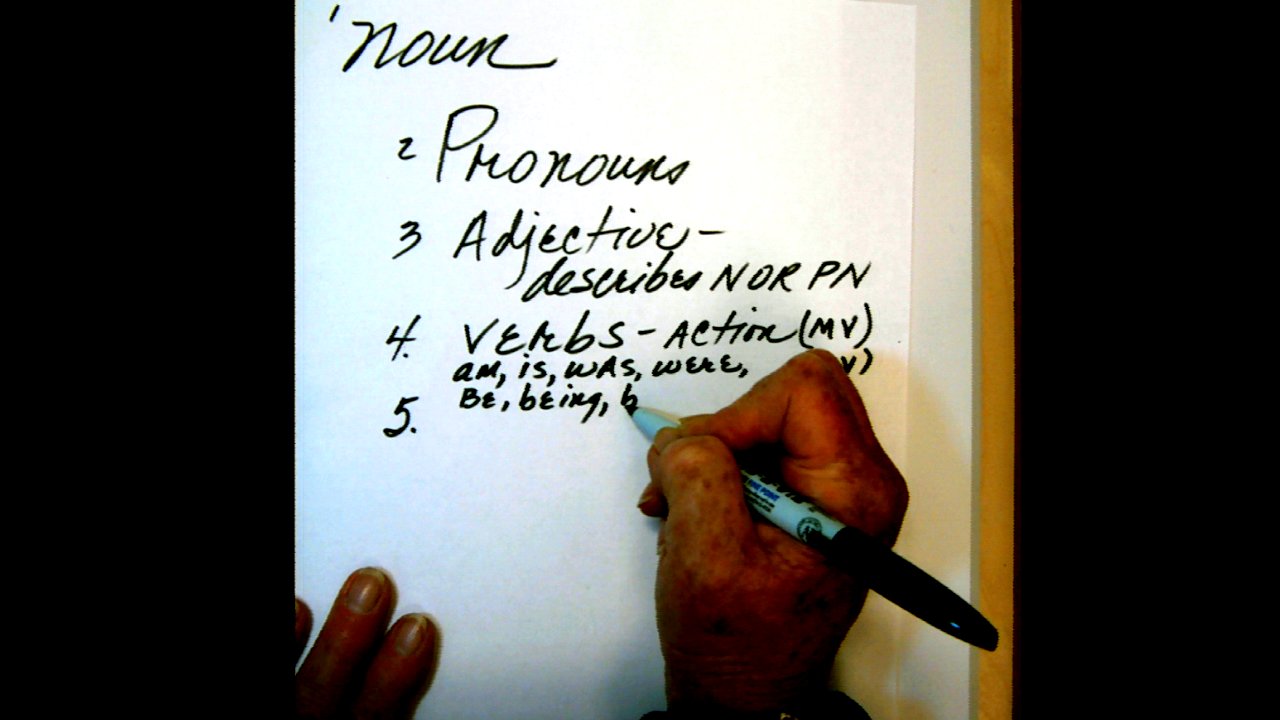 1 noun
2 Pronouns
3 Adjective -
describes N OR PN
4. VERbS - ACtion (MV)
am, is, wAS, wERE, V)
BE, bEing, b
5.